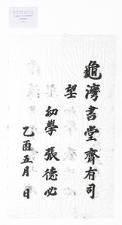 龜灣書堂齋有司
望
幼學張德必
乙酉五月 日